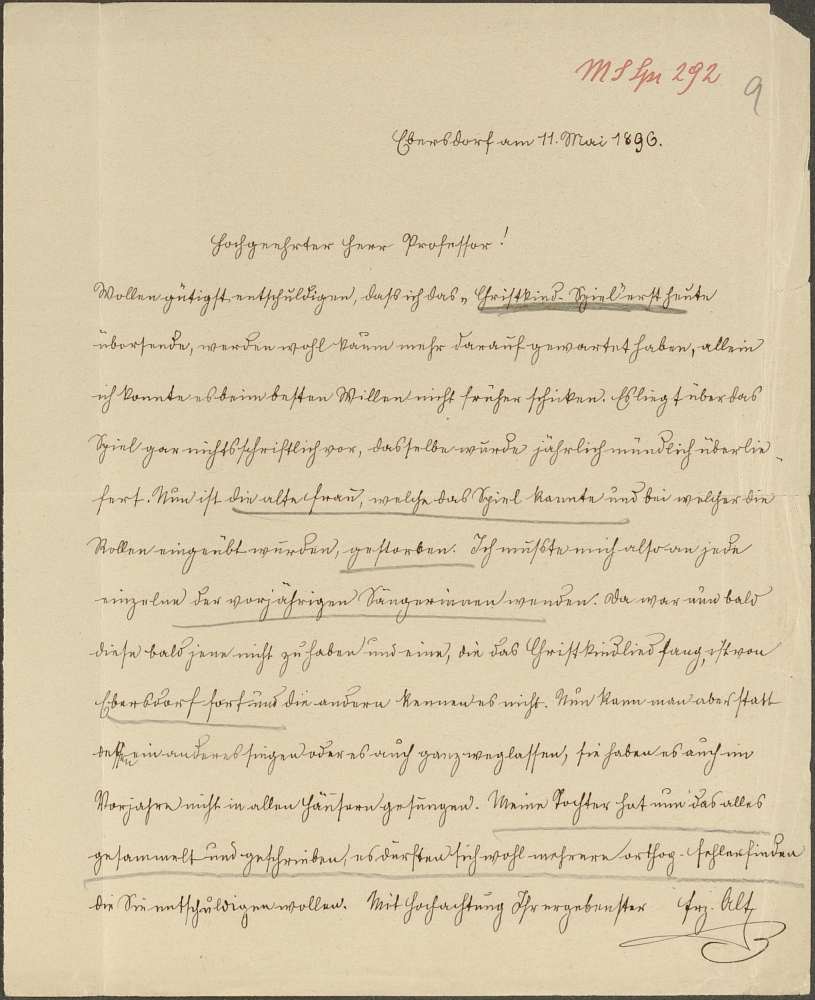 MS Spr 292
9
Ebersdorf am 11. Mai 1896.
Hochgeehrter Herr Professor!
Wollen gütigst entschuldigen, dass ich das „Christkind-Spiel“ erst heute
übersende, werden wohl kaum mehr darauf gewartet haben, allein
ich konnte es beim besten Willen nicht früher schicken. Es liegt über das
Spiel gar nichts schriftlich vor, dasselbe wurde jährlich mündlich überlie-
fert. Nun ist die alte Frau, welche das Spiel kannte und bei welcher die
Rollen eingeübt wurden, gestorben. Ich musste mich also an jede
einzelne der vorjährigen Sängerinnen wenden. Da war nun bald
diese bald jene nicht zu haben und eine, die das Christkindlied sang, ist von
Ebersdorf fort und die andern kennen es nicht. Nun kann man aber statt
dessen ein anderes singen oder es auch ganz weglassen, sie haben es auch im
Vorjahre nicht in allen Häusern gesungen. Meine Tochter hat nun das alles
gesammelt und geschrieben, es dürften sich wohl mehrere orthog. Fehler finden
die Sie entschuldigen wollen. Mit Hochachtung Ihr ergebenster Frz. Alt